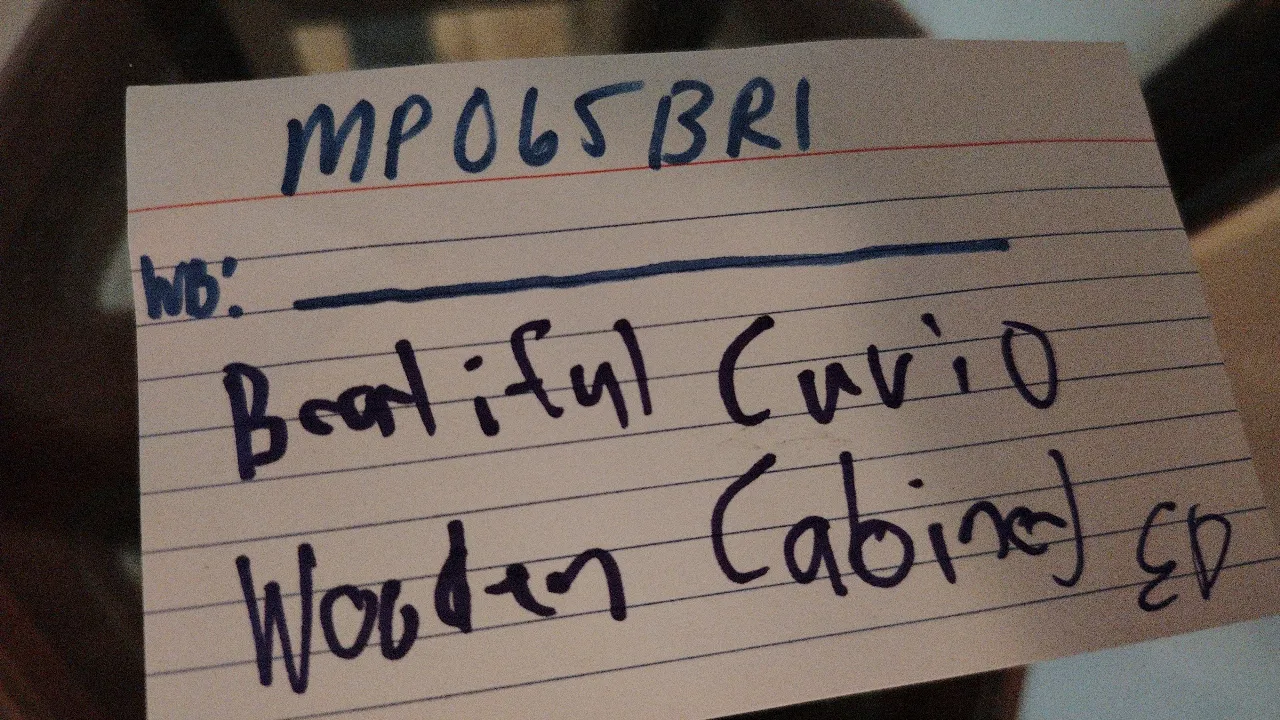 MP065BR1
WB:
Beautiful Curio
Wooden Cabinet ED